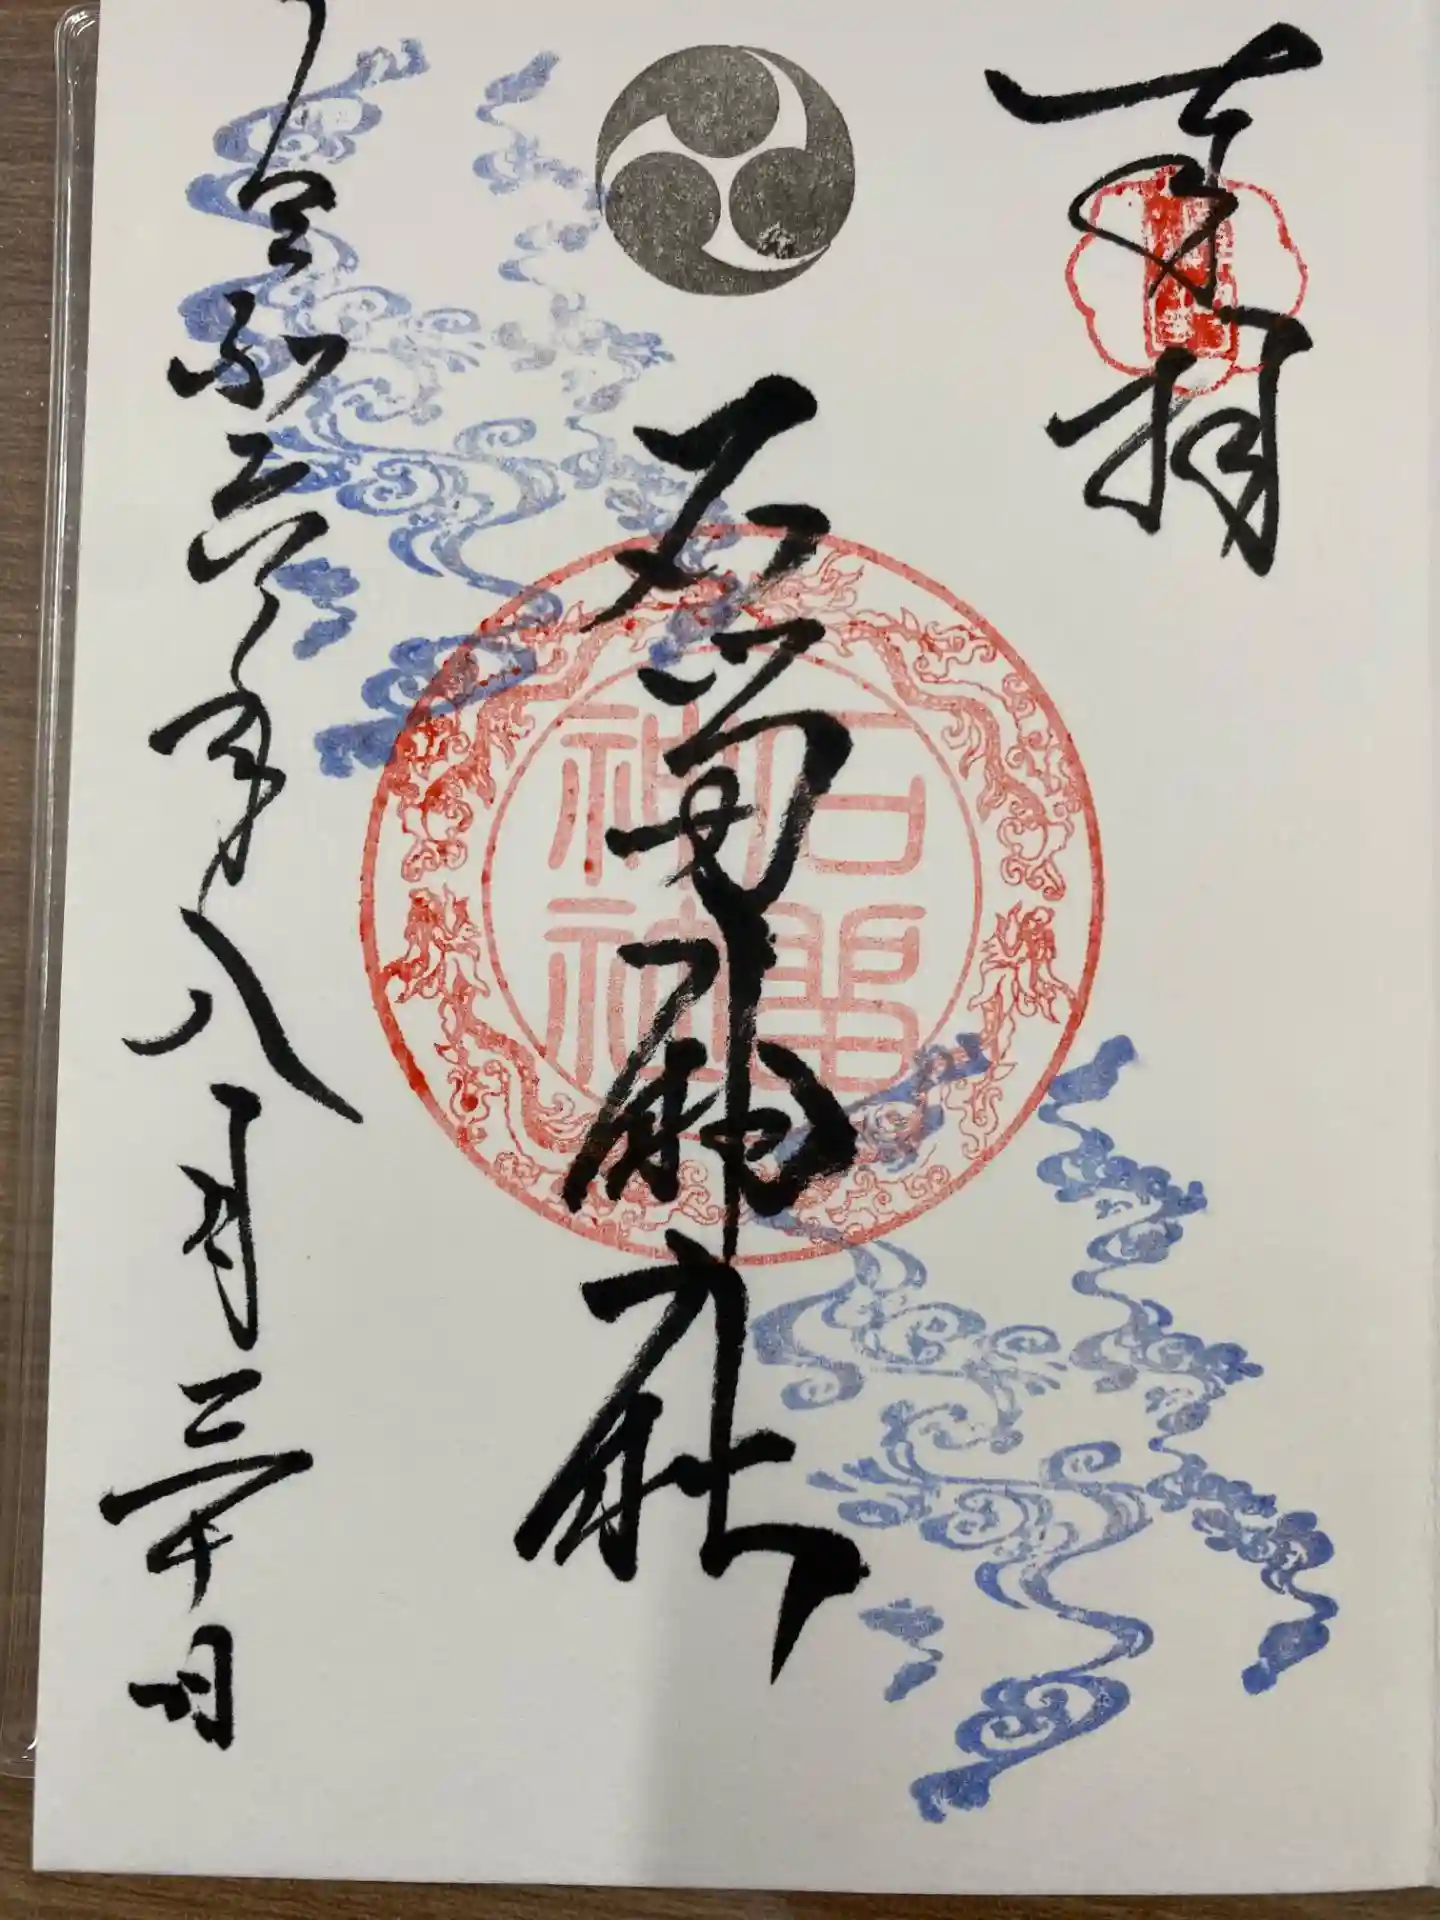 奉拝
石 神社
令和六年八月三十日
神社